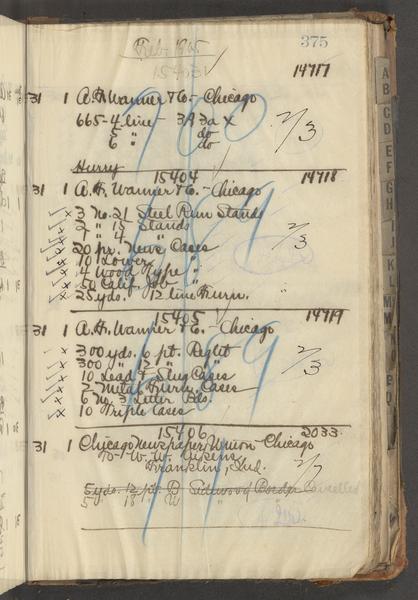 375
Feb 1905
15403 14717
31 1 A.H. Wanner & Co. - Chicago
665-4 line - 3A 3a x
5 " do
6 " do
2/3
Hurry
15404 14718
31 1 A.H. Wanner & Co. - Chicago
3 No. 21 Steel Run Stands
2 " 15 Stands
2 " 4 "
2/3
20 pr. News Cases
10 Lower "
4 Wood Type "
50 Calif. Job "
25 yds. 12 line Furn.
15405 14719
31 1 A.H. Wanner & Co. - Chicago
300 yds. 6 pt. Reglet
300 " 12 " "
2/3
10 Lead & Slug Cases
2 Metal Furn. Cases
6 No. 3 Letter Bds.
10 Triple Cases
15406 2033
31 1 Chicago Newspaper Union - Chicago
To W. W. Aikens,
Franklin, Ind.
2/7
5 yds. 12 pt. B Sidewood Border Cancelled
5 " 18 "
A
B
C
D
E
F
G
H
I
J
K
L
M